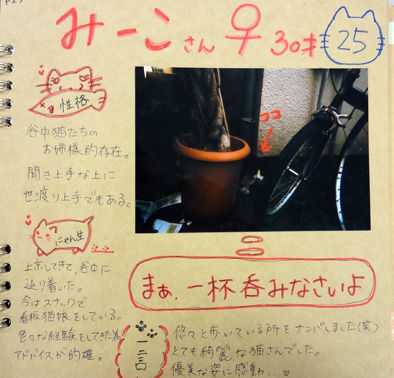 みーこさん ♀ 30才
25
性格
谷中猫たちの
お姉様的存在。
聞き上手な上に
世渡り上手でもある。
ココ
にゃん生
上京してきて、谷中に
辿り着いた。
今はスナックで
看板猫娘をしている。
色々な経験をしてきた為
アドバイスが的確。
まぁ、一杯呑みなさいよ
一言
悠々と歩いている所をナンパしました(笑)
とても綺麗な猫さんでした。
優美な姿に感動...